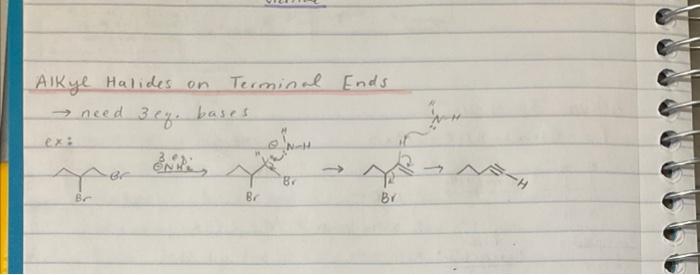 Alkyl Halides on Terminal Ends
→ need 3 eq. bases
ex:
3 eq.
⊖NH₂
Br
Br
H
⊖
N-H
H
Br
Br
H
N-H
H
Br
H